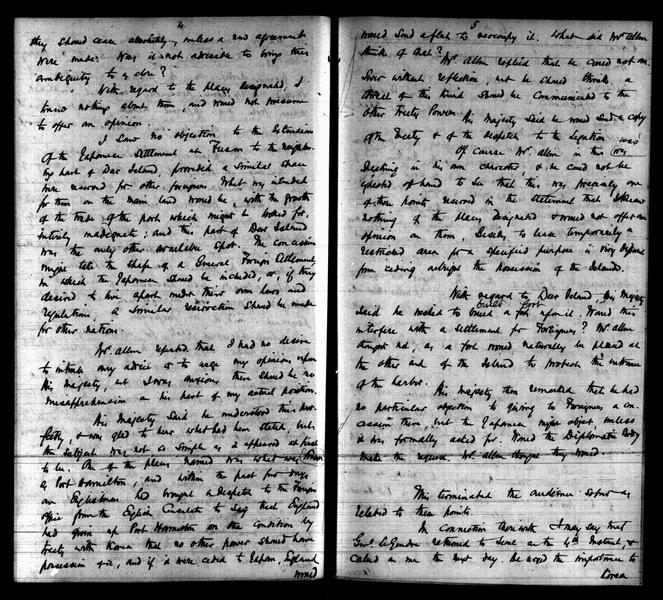 4
they should cease absolutely, unless a new agreement
were made. Was it not advisable to bring this
ambiguity to a close?
With regard to the places designated, I
knew nothing about them, and would not presume
to offer an opinion.
I saw no objection to the extension
of the Japanese Settlement at Fusan to the neighbor-
ing part of Deer Island, provided a similar space
were reserved for other foreigners. What was intended
for them on the main land would be, with the growth
of the trade of the port which might be looked for,
entirely inadequate; and this part of Deer Island
was the only other available spot. The concession
might take the shape of a General Foreign Settlement
in which the Japanese should be included, or, if they
desired to live apart under their own laws and
regulations, a similar reservation should be made
for other nations.
Mr Allen repeated that I had no desire
to intrude my advice or to urge my opinions upon
His Majesty, but I was anxious there should be no
misapprehension on his part of my actual position.
His Majesty said he understood this per-
fectly, & was glad to hear what had been stated, but
the subject was not so simple as it appeared at first
to be. One of the places named was what was known
as Port Hamilton, and within the past few days
an Englishman had brought a despatch to the Foreign
Office from the English Consulate to say that England
had given up Port Hamilton on the condition by
treaty with Korea that no other power should have
possession of it, and if it were ceded to Japan, England
would
5
would send a fleet to reoccupy it. What did Mr Allen
think of that?
Mr. Allen replied that he could not an-
swer without reflection, but he should think a
threat of this kind should be communicated to the
other Treaty Powers. His Majesty said he would send a copy
of the Treaty & of the despatch to the Legation
Of course Mr. Allen in this was
speaking in his own character, & he could not be
expected off hand to see that this was precisely one
of those points reserved in the statement that I knew
nothing of the places designated & would not offer an
opinion on them. Besides, to lease temporarily a
restricted area for a specified purpose is very different
from ceding outright the possession of the Islands.
With regard to Deer Island, His Majesty
said he wished to build a fort upon it. Would this
interfere with a settlement for foreigners? Mr. Allen
thought not, as a fort would naturally be placed at
the other end of the Island to protect the entrance
of the harbor.
His Majesty then remarked that he had
no particular objection to giving to foreigners a con-
cession there, but the Japanese might object, unless
it was formally asked for. Would the Diplomatic Body
make the request. Mr. Allen thought they would.
This terminated the audience so far as
related to these points.
In connection therewith I may say that
Genl LeGendre returned to Seoul on the 4th Instant, &
called on me the next day. He urged the importance to
Korea